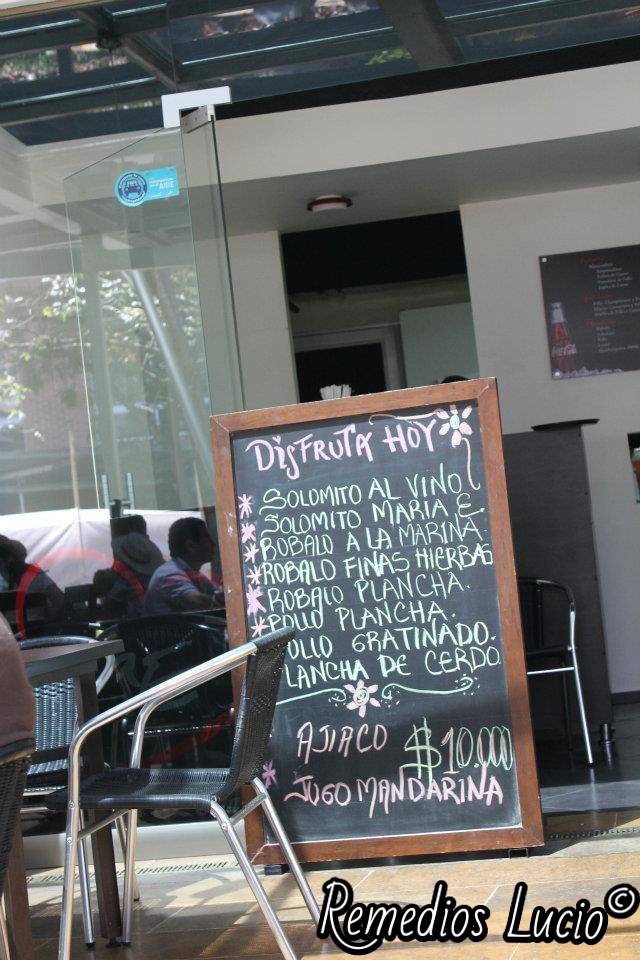 DISFRUTA HOY
SOLOMITO AL VINO
SOLOMITO MARIA E
ROBALO A LA MARINA
ROBALO FINAS HIERBAS
ROBALO PLANCHA.
POLLO PLANCHA.
POLLO GRATINADO.
PLANCHA DE CERDO.
AJIACO $10.000
JUGO MANDARINA
Coca-Cola
AIRE
Remedios Lucio©